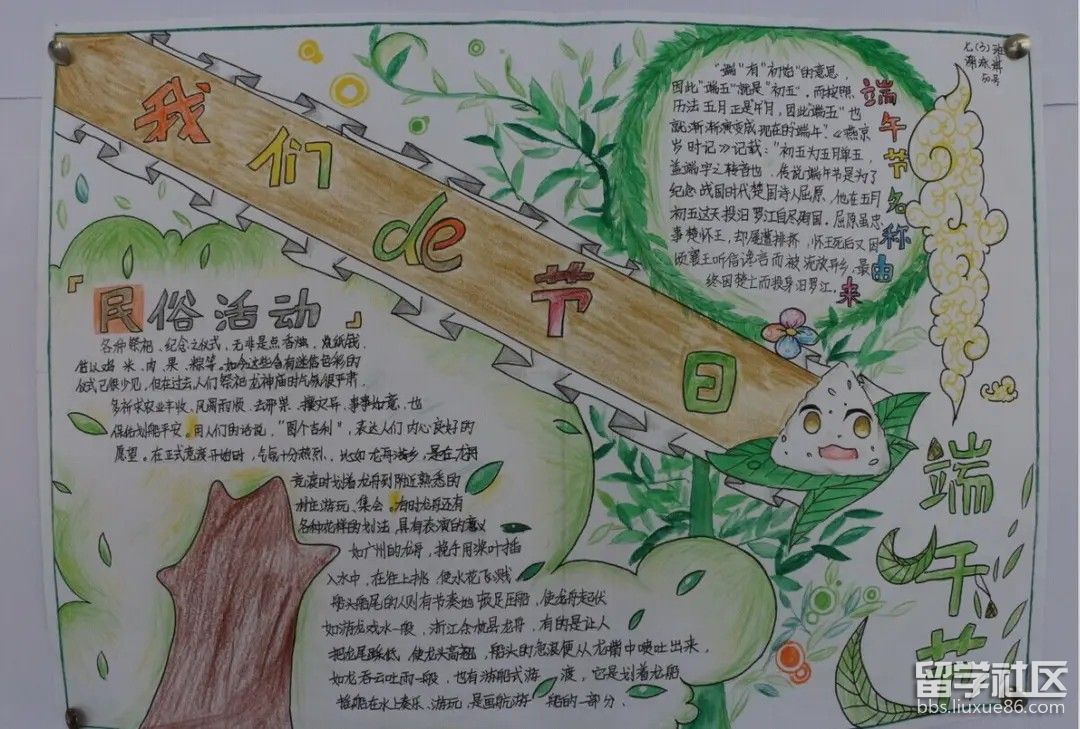 我们de节日
七(3)班
50号
端午节名称由来
"端"有"初始"的意思,
因此"端五"就是"初五"。而按照
历法五月正是"午"月,因此"端五"也
就渐渐演变成现在的"端午"。《燕京
岁时记》记载:"初五为五月单五,
盖端字之转音也。传说端午节是为了
纪念战国时代楚国诗人屈原,他在五月
初五这天投汨罗江自尽殉国,屈原虽忠
事楚怀王,却屡遭排挤,怀王死后又因
顷襄王听信谗言而被流放异乡,最
终因楚亡而投身汨罗江。
「民俗活动」
各种祭祀、纪念之仪式,无非是点香烛,烧纸钱,
供以鸡、米、肉、果、粽等。如今这些含有迷信色彩的
仪式已很少见,但在过去,人们祭祀龙神庙时气氛很严肃,
多祈求农业丰收、风调雨顺、去邪祟、攘灾异、事事如意,也
保佑划船平安。用人们的话说,"图个吉利",表达人们内心良好的
愿望。在正式竞渡开始时,气氛十分热烈。比如龙舟游乡,是在龙舟
竞渡时划着龙舟到附近熟悉的
村庄游玩、集会。有时龙舟还有
各种花样的划法,具有表演的意义
如广州的龙舟,挽手用桨叶插
入水中,在往上挑,使水花飞溅
船头船尾的人则有节奏地顿足压船,使龙舟起伏
如游龙戏水一般,浙江余杭县龙舟,有的是让人
把龙尾踩低,使龙头高翘,船头的急浪便从龙嘴中喷吐出来,
如龙吞云吐雨一般,也有游船式游渡,它是划着龙船
船在水上奏乐、游玩,是画舫游船的一部分。
端午节
留学社区
bbs.liuxue86.com